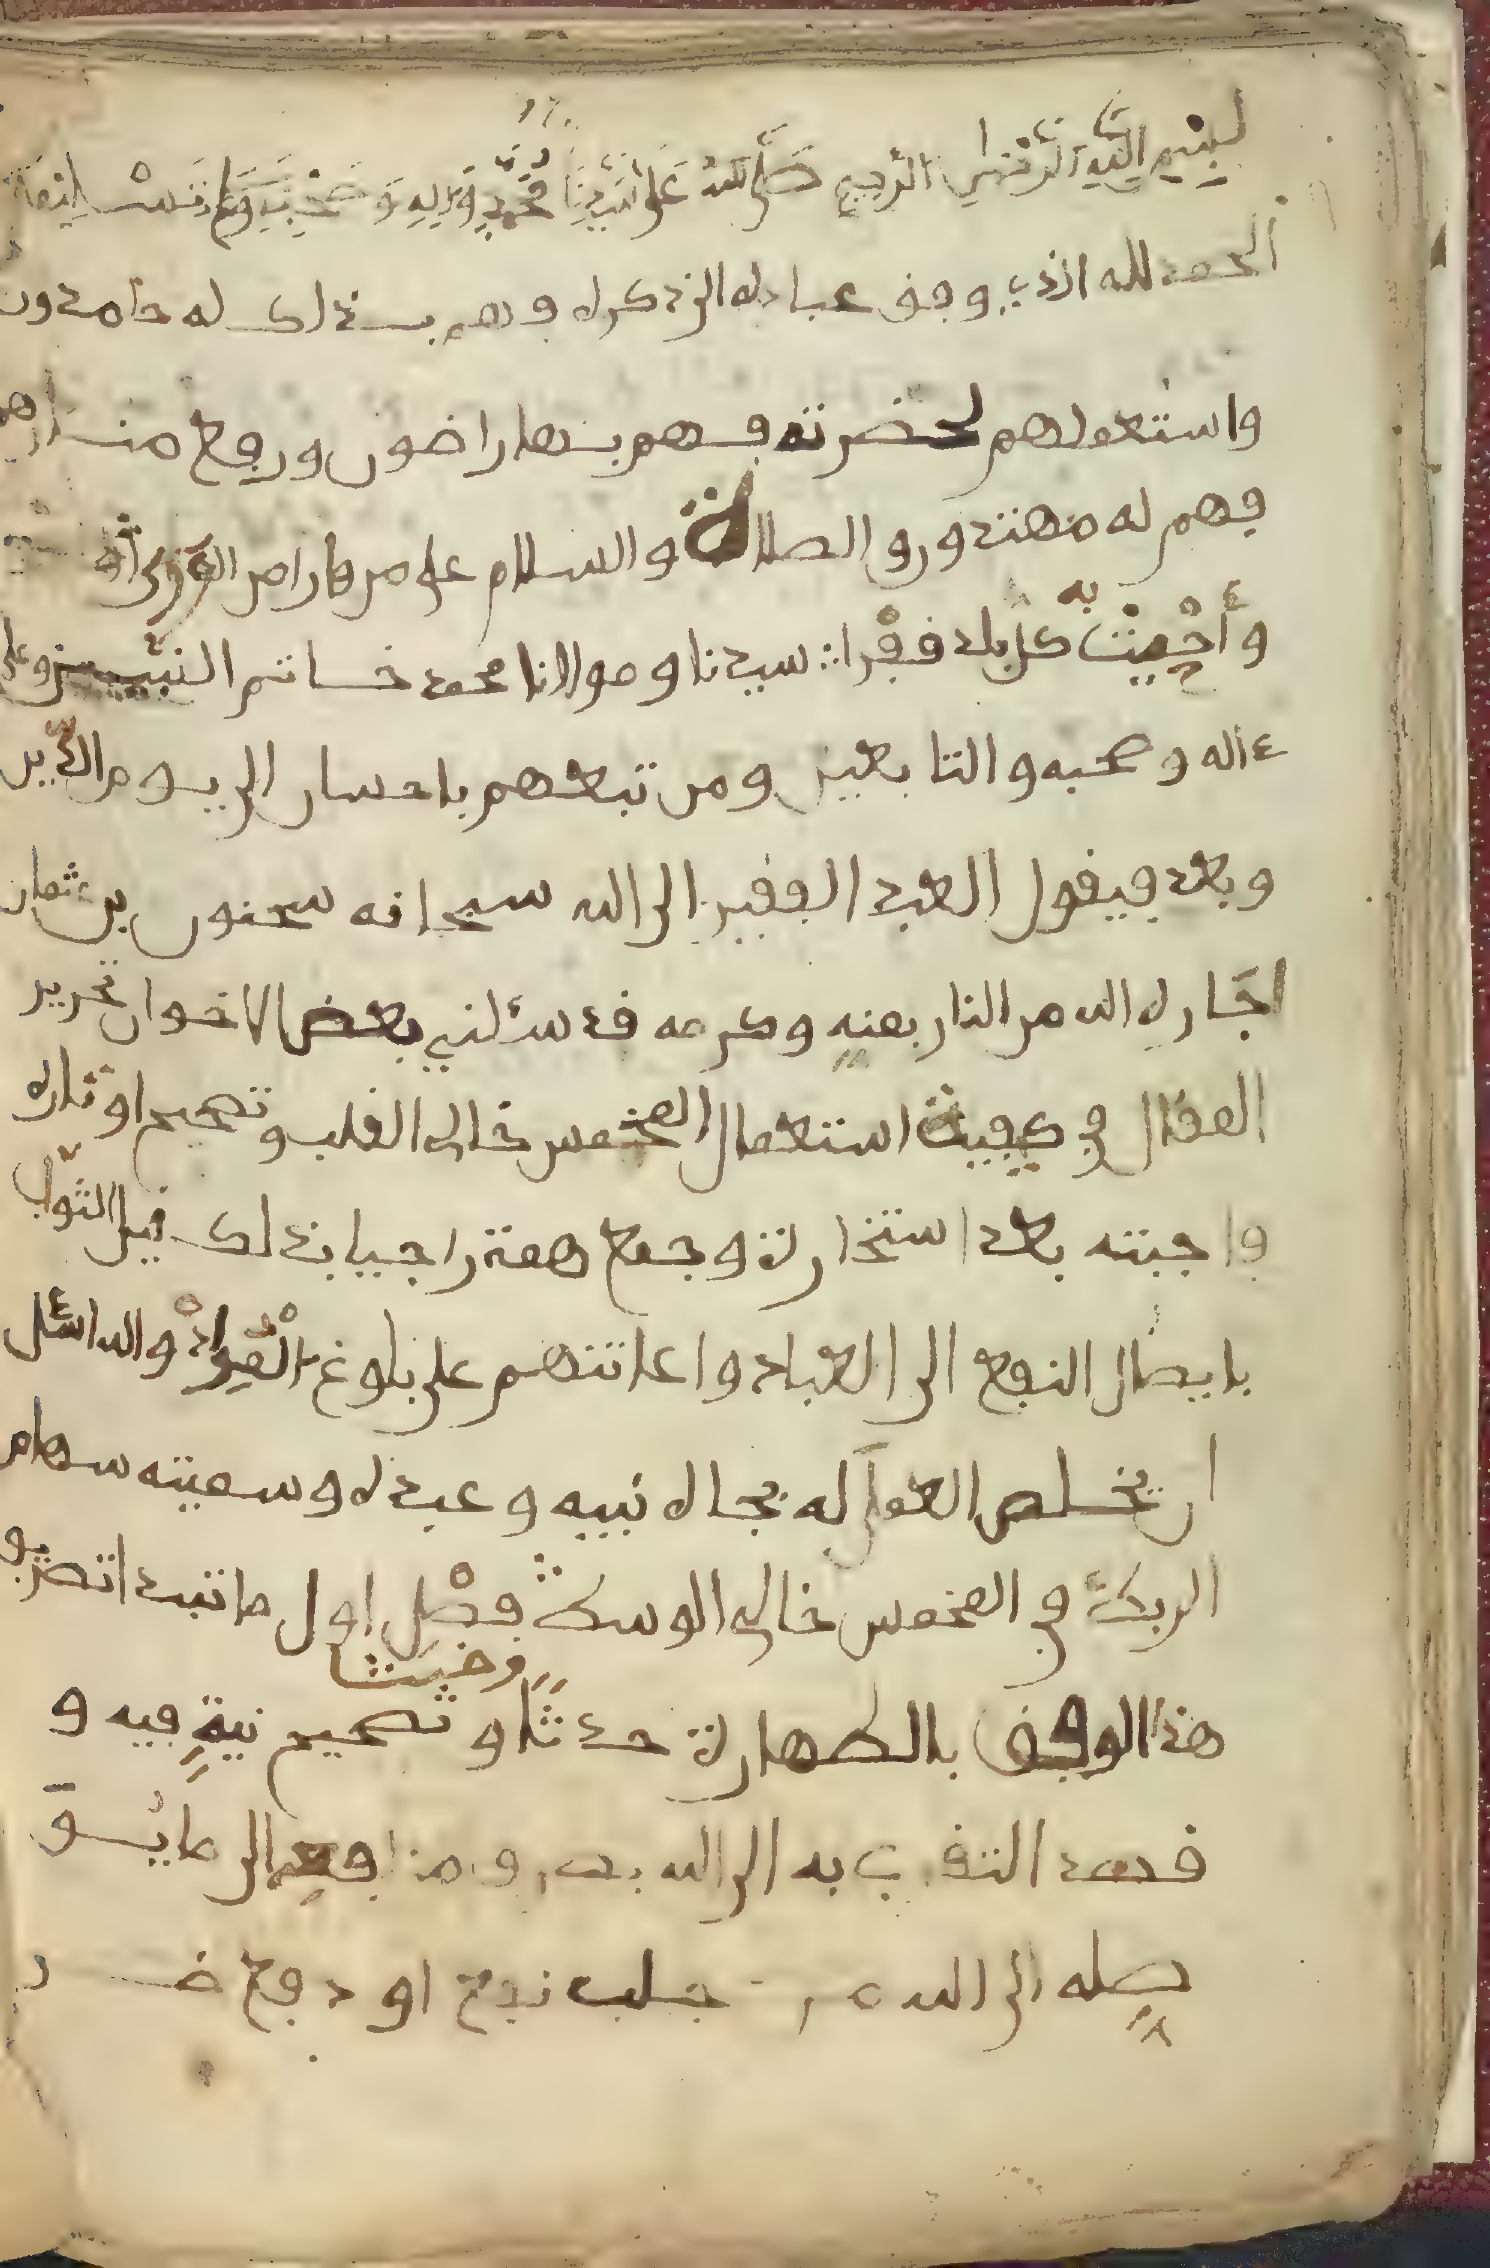 بسم الله الرحمن الرحيم صلى الله على سيدنا محمد وءاله وصحبه وسلم
الحمد لله الذي وفق عباده الى ذكره وهم بذلك له حامدون
واستعملهم لحضرته فهم بها راضون ورفع منارهم
فهم له مهتدون والصلاة والسلام على من
سيدنا ومولانا محمد خاتم النبيين وعلى
ءاله وصحبه والتابعين ومن تبعهم باحسان الى يوم الدين
وبعد فيقول العبد الفقير الى الله سبحانه سحنون بن عثمان
اجاره الله من النار بمنه وكرمه قد سئلني بعض الاخوان تحرير
المقال في كيفية استعمال المخمس خالى القلب وتصحيح اوتاره
واجبته بعد استخارة وجمع همة راجيا بذلك نيل الثواب
بايصال النفع الى العباد واعانتهم على بلوغ المراد والله اسئل
ان يخلص العمل له بجاه نبيه وعبده وسميته سهام
الربط في المخمس خالى الوسط فصل اول ما تبدا تصريف
هذا الوفق بالطهارة حدثا وخبثا وتصحيح نية فيه و
قصد التقرب به الى الله
الى الله جلب نفع او دفع ضر